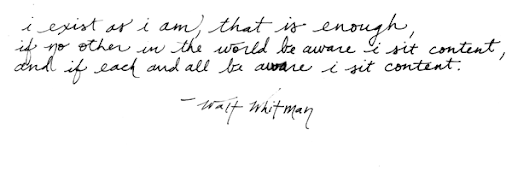 i exist as i am, that is enough,
if no other in the world be aware i sit content,
and if each and all be aware i sit content.
- Walt Whitman